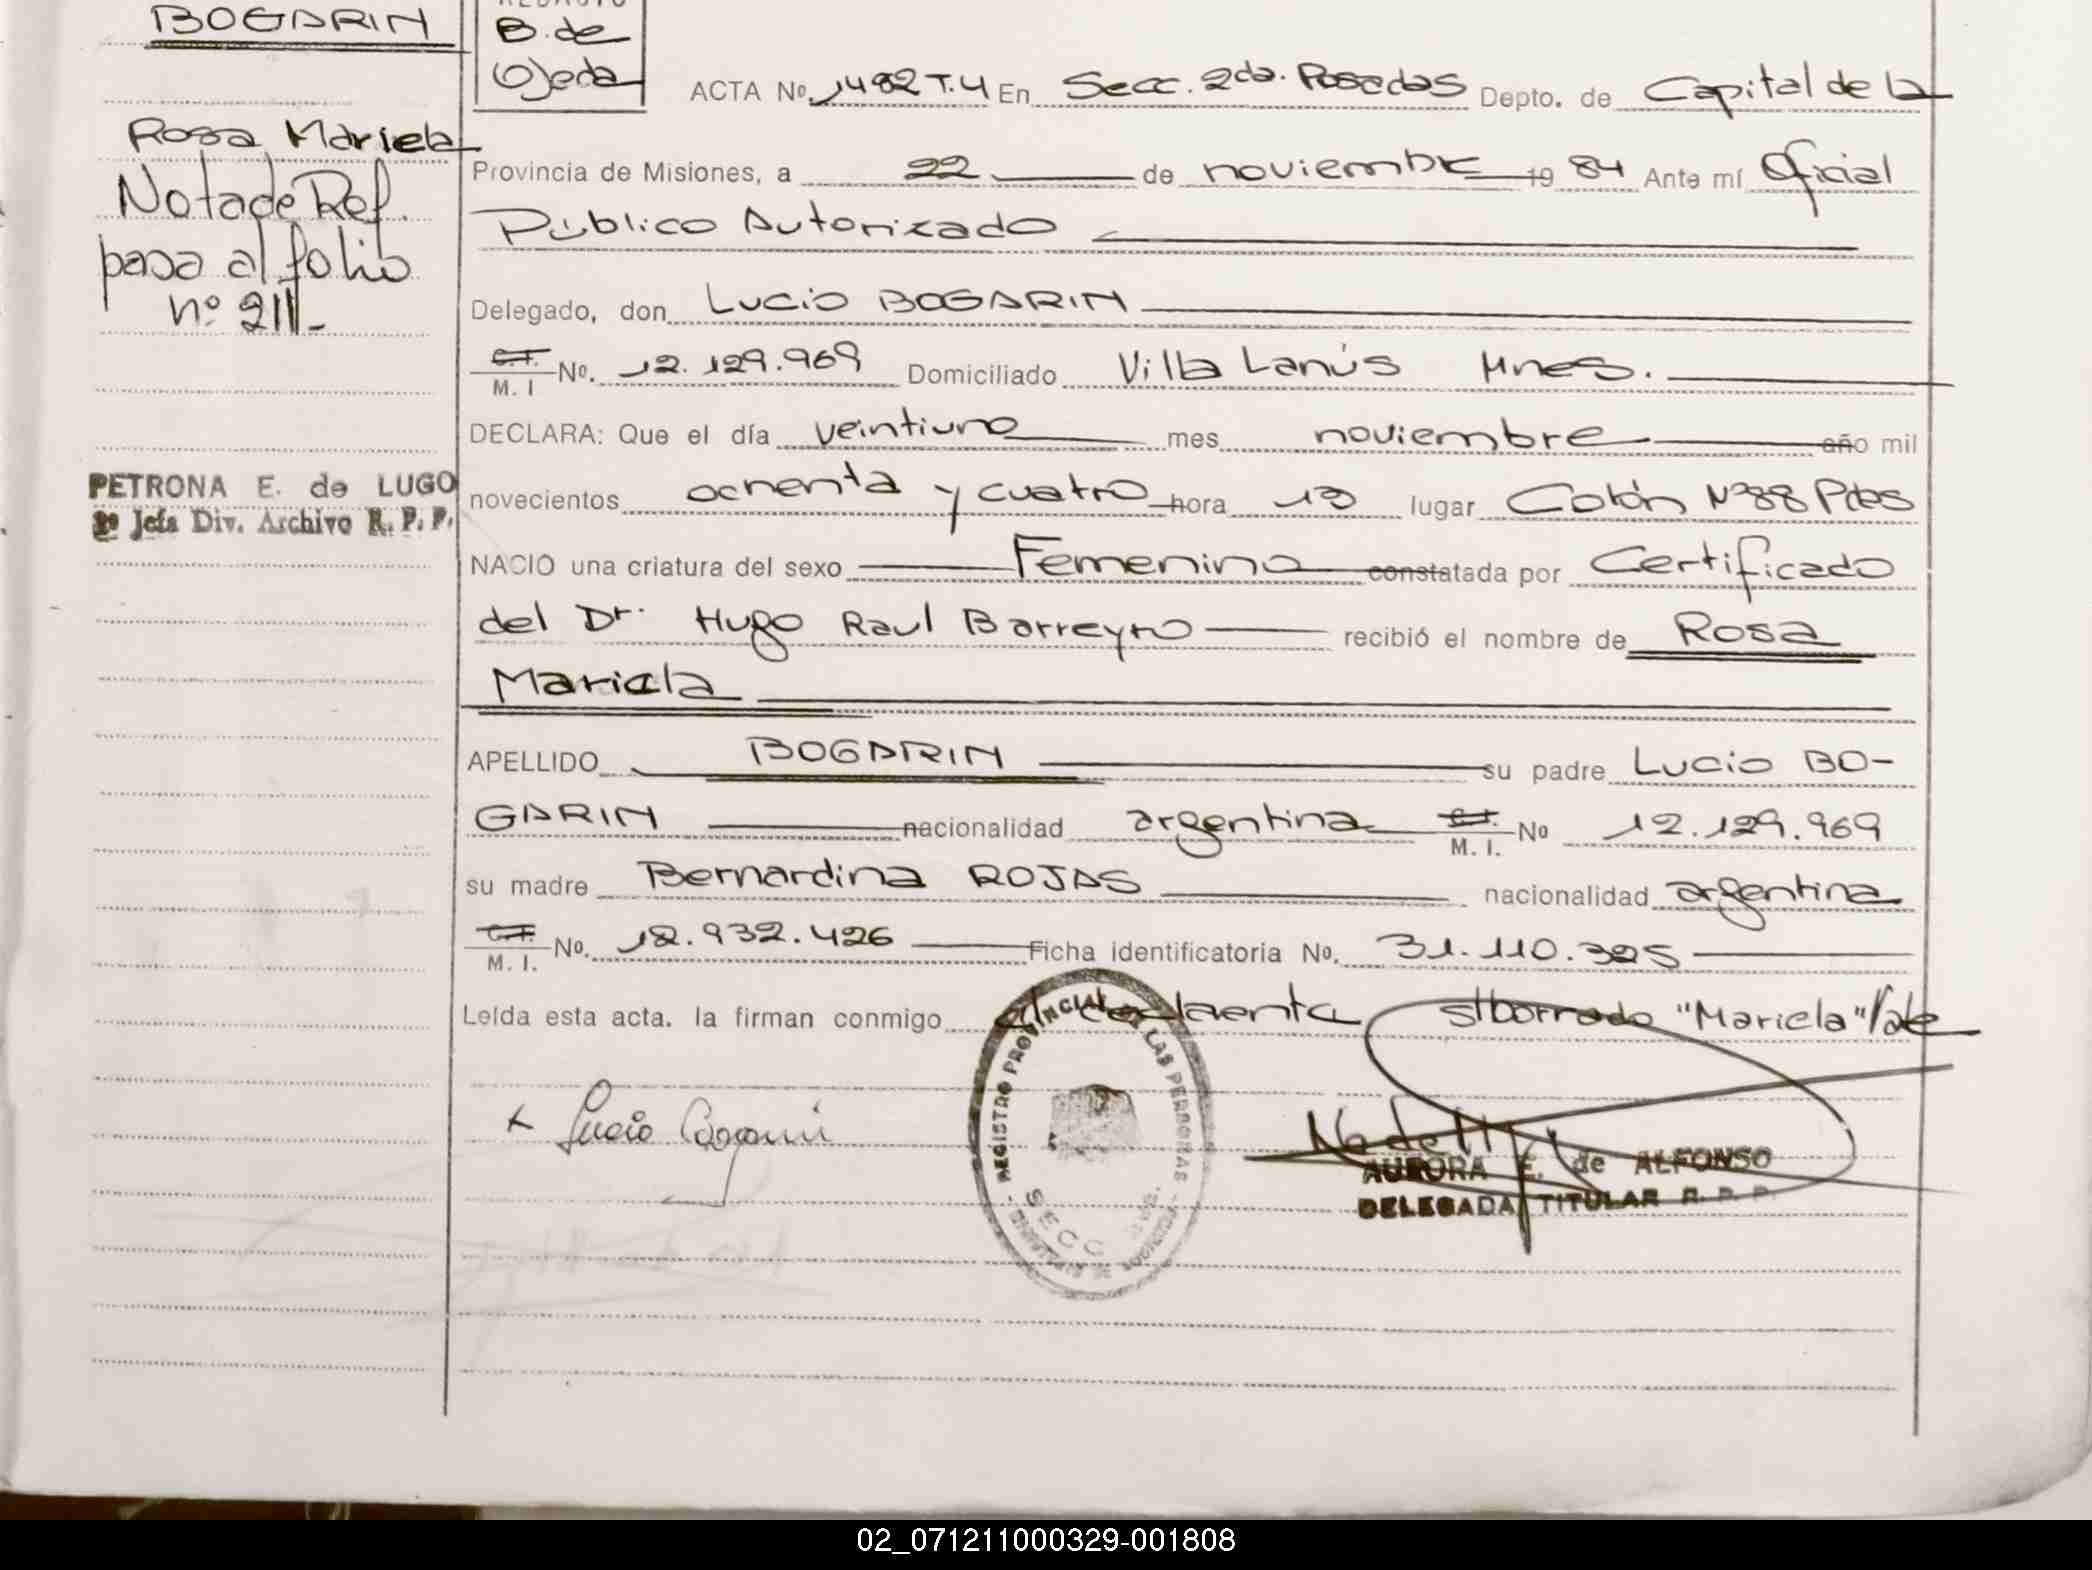 BOGARIN
B. de
Ojeda
ACTA No. 1482 T.4 En Secc. 2da. Posadas Depto. de Capital de la
Rosa Mariela
Nota de Ref.
pasa al folio
nº 211-
PETRONA E. de LUGO
Jefa Div. Archivo R. P. P.
Provincia de Misiones, a 22 de noviembre 1984 Ante mí Oficial
Público Autorizado
Delegado, don Lucio BOGARIN
C.I.
M. I No. 12.129.969 Domiciliado Villa Lanús Mnes.
DECLARA: Que el día veintiuno mes noviembre año mil
novecientos ochenta y cuatro hora 13 lugar Colón Nº 88 Pdas
NACIO una criatura del sexo Femenino constatada por Certificado
del Dr. Hugo Raul Barreyro recibió el nombre de Rosa
Mariela
APELLIDO BOGARIN su padre Lucio BO-
GARIN nacionalidad argentina C.I. M. I. No 12.129.969
su madre Bernardina ROJAS nacionalidad argentina
C.I.
M. I. No. 18.932.426 Ficha identificatoria No. 31.110.325
Leída esta acta. la firman conmigo el declarante s/borrado "Mariela" Vale
Lucio Bogarin
REGISTRO PROVINCIAL DE LAS PERSONAS
SECC
AURORA E. de ALFONSO
DELEGADA TITULAR R. P. P.
02_071211000329-001808